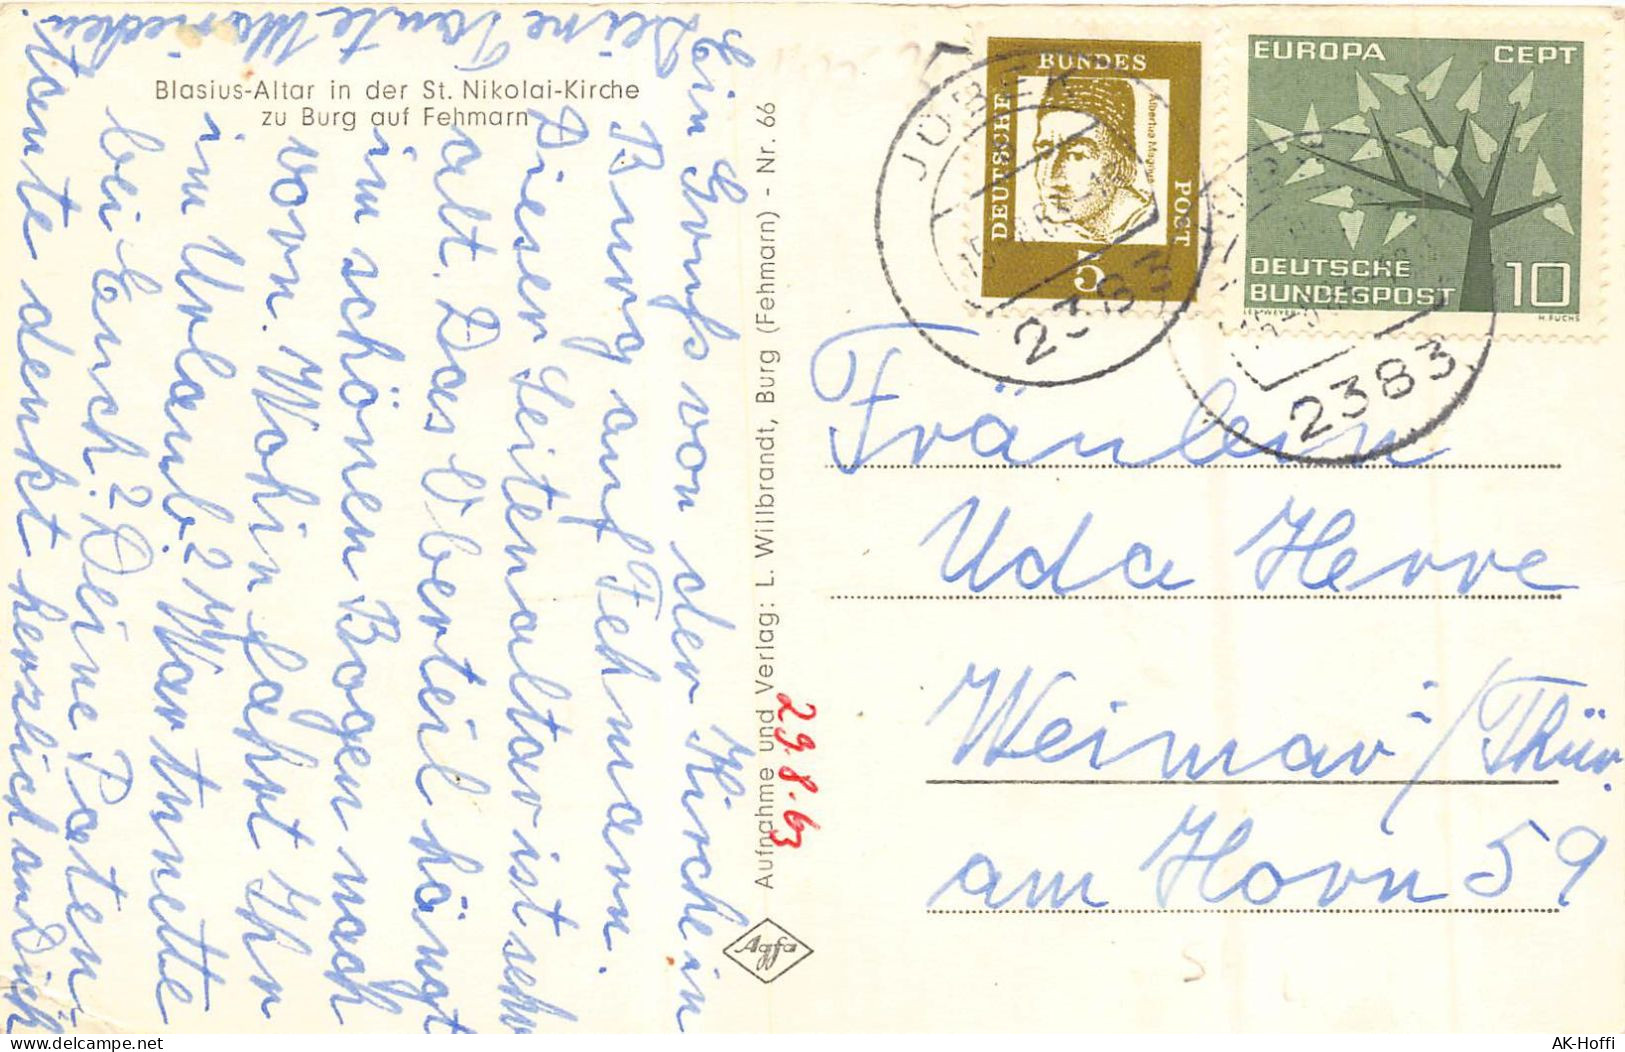 Blasius-Altar in der St. Nikolai-Kirche
zu Burg auf Fehmarn
Ein Gruß von der Kirche in
Burg auf Fehmarn.
Dieser Seitenaltar ist sehr
alt. Das Oberteil hängt
im schönen Bogen nach
vorn. Wohin fahrt Ihr
im Urlaub? War Annette
bei Euch? Deine Paten-
tante denkt herzlich an Dich
Deine Tante Mariechen.
Aufnahme und Verlag: L. Willbrandt, Burg (Fehmarn) - Nr. 66
29.8.63
Agfa
DEUTSCHE
BUNDES
POST
Albertus Magnus
5
EUROPA CEPT
DEUTSCHE
BUNDESPOST
10
H. FUCHS
JÜBEK
2383
2383
Fräulein
Uda Herre
Weimar / Thür.
am Horn 59
AK-Hoffi